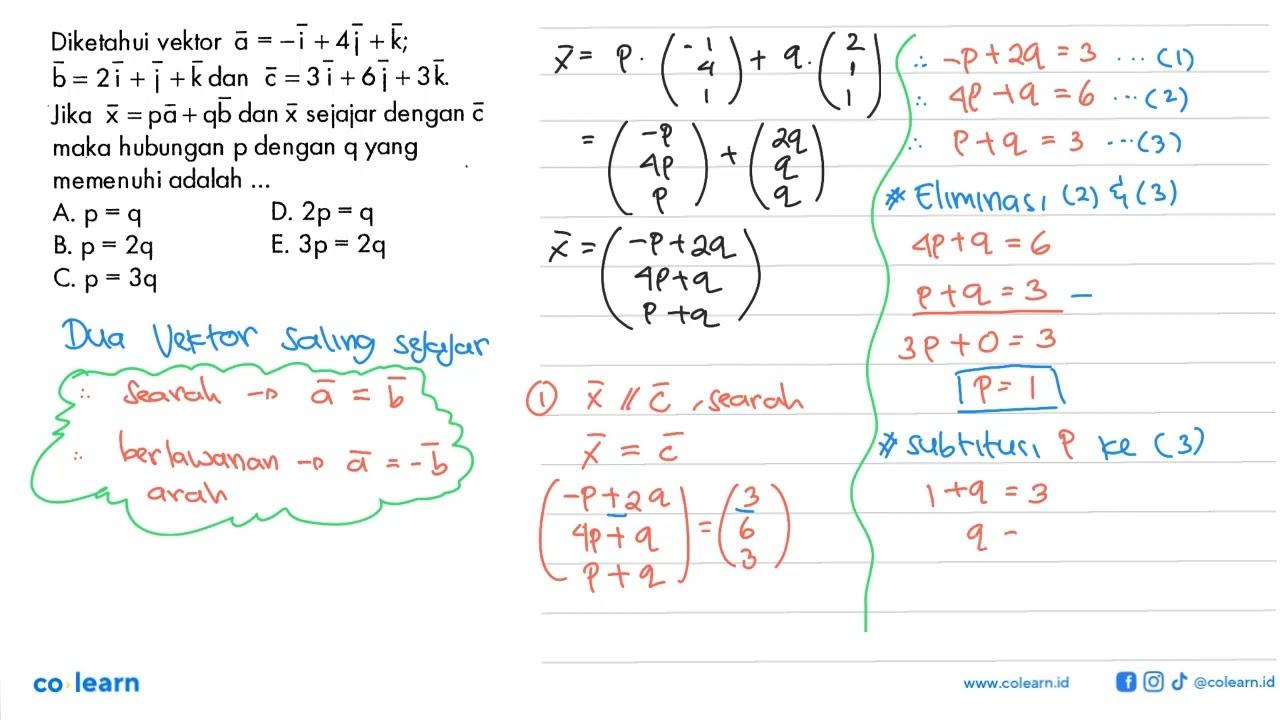 Diketahui vektor ā = −ī + 4j̄ + k̄;
b̄ = 2ī + j̄ + k̄ dan c̄ = 3ī + 6j̄ + 3k̄.
Jika x̄ = pā + qb̄ dan x̄ sejajar dengan c̄
maka hubungan p dengan q yang
memenuhi adalah ...
A. p = q
D. 2p = q
B. p = 2q
E. 3p = 2q
C. p = 3q
Dua Vektor saling sejajar
∴ searah → ā = b̄
∴ berlawanan → ā = -b̄
arah
x̄ = p. (-1 4 1) + q. (2 1 1)
= (-p 4p p) + (2q q q)
x̄ = (-p+2q 4p+q p+q)
① x̄ // c̄, searah
x̄ = c̄
(-p+2q 4p+q p+q) = (3 6 3)
∴ -p+2q = 3 ...(1)
∴ 4p+q = 6 ...(2)
∴ p+q = 3 ...(3)
* Eliminasi (2) & (3)
4p+q = 6
p+q = 3 −
3p+0 = 3
p = 1
* subtitusi p ke (3)
1+q = 3
q -
co learn
www.colearn.id
@colearn.id